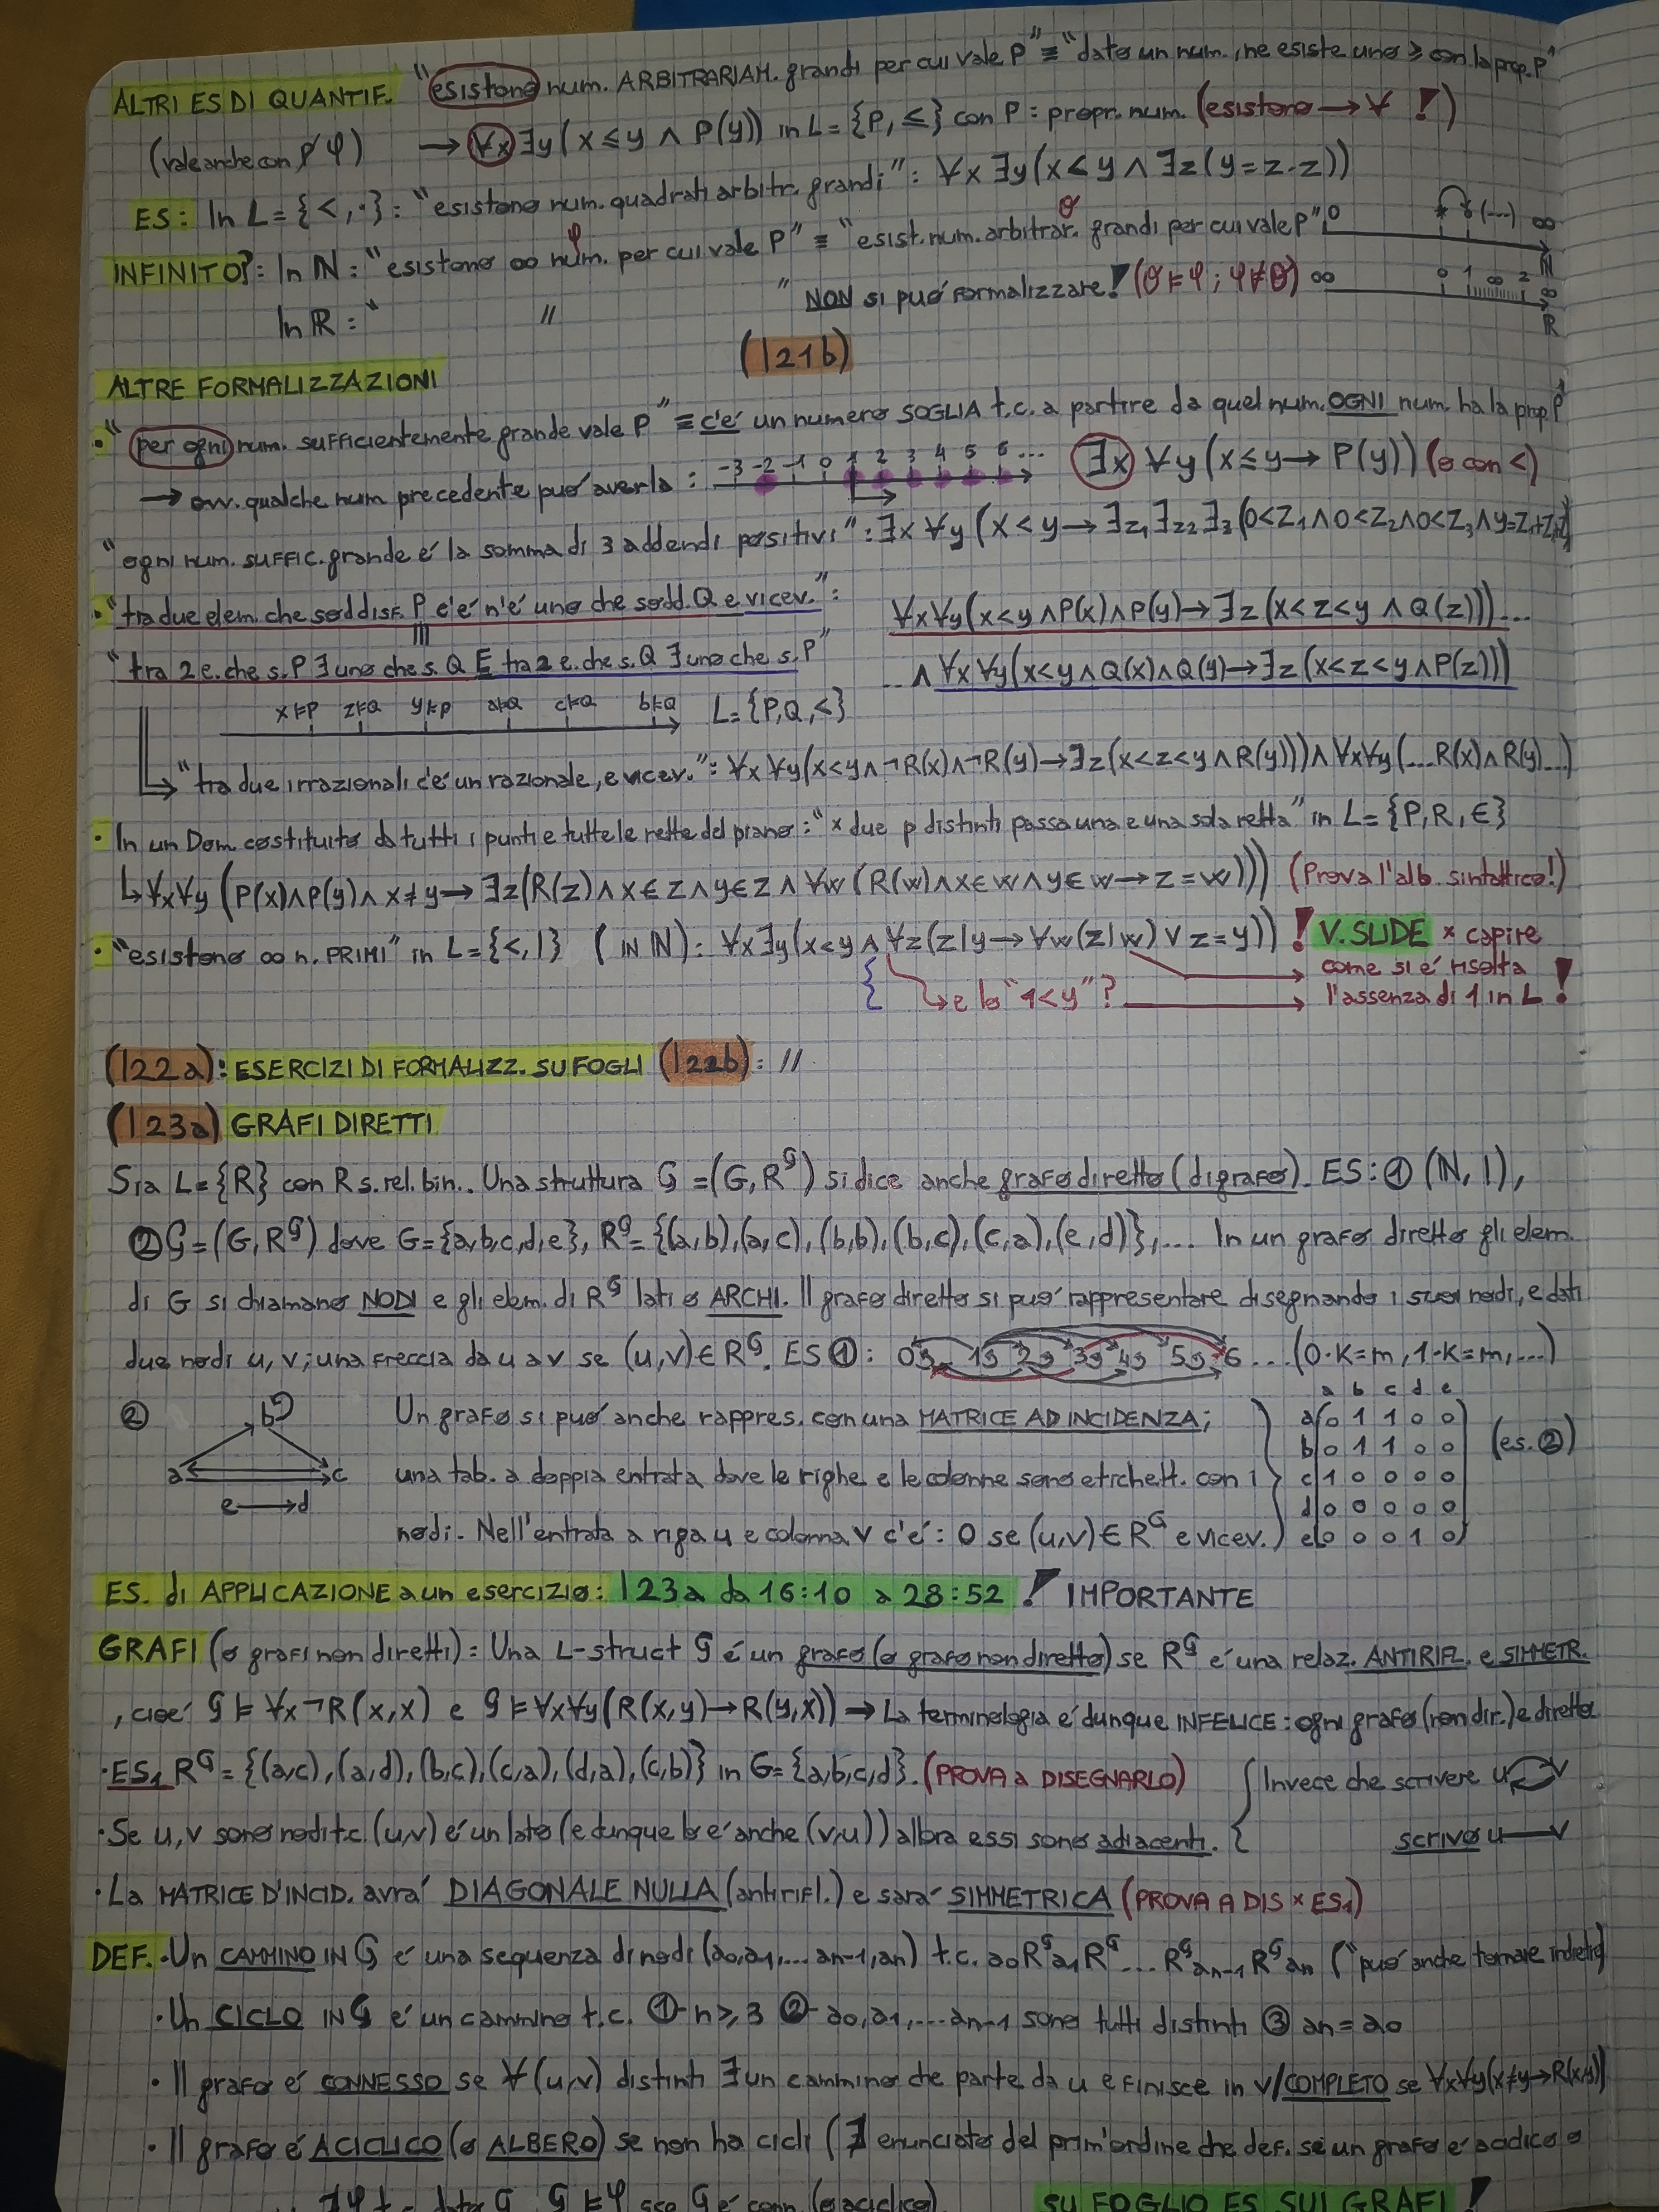 ALTRI ES DI QUANTIF. "esistono num. ARBITRARIAM. grandi per cui vale P" ≡ "dato un num., ne esiste uno ≥ con la prop. P"
(vale anche con φ) → ∀x ∃y (x ≤ y ∧ P(y)) in L = {P, ≤} con P: propr. num. (esistono → ∀ !)
ES: In L = {<, ·}: "esistono num. quadrati arbitr. grandi": ∀x ∃y (x < y ∧ ∃z (y = z·z))
INFINITO?: In ℕ: "esistono ∞ num. per cui vale P" ≡ "esist. num. arbitrar. grandi per cui vale P"
φ σ 0 (...) ∞ ℕ
In ℝ: " // " NON si può formalizzare! (σ ⊨ φ ; φ ⊭ σ) ∞ 0 1 ∞ 2 ∞ ℝ
(l21b)
ALTRE FORMALIZZAZIONI
• "per ogni num. sufficientemente grande vale P" ≡ c'é un numero SOGLIA t.c. a partire da quel num. OGNI num. ha la prop. P
→ ovv. qualche num precedente può averla: -3 -2 -1 0 1 2 3 4 5 6 ... ∃x ∀y (x ≤ y → P(y)) (o con <)
"ogni num. suffic. grande é la somma di 3 addendi positivi": ∃x ∀y (x < y → ∃z₁ ∃z₂ ∃₃ (0<z₁ ∧ 0<z₂ ∧ 0<z₃ ∧ y=z₁+z₂+z₃)
• "tra due elem. che soddisf. P c'é n'é uno che sodd. Q e vicev.": ∀x∀y (x<y ∧ P(x) ∧ P(y) → ∃z (x<z<y ∧ Q(z))) ...
"tra 2 e. che s. P ∃ uno che s. Q E tra 2 e. che s. Q ∃ uno che s. P" ... ∧ ∀x∀y (x<y ∧ Q(x) ∧ Q(y) → ∃z (x<z<y ∧ P(z)))
x⊨P z⊨Q y⊨P a⊨Q c⊨Q b⊨Q L = {P, Q, <}
↳ "tra due irrazionali c'é un razionale, e vicev.": ∀x ∀y (x<y ∧ ¬R(x) ∧ ¬R(y) → ∃z (x<z<y ∧ R(y))) ∧ ∀x∀y (... R(x) ∧ R(y) ...)
• In un Dom. costituito da tutti i punti e tutte le rette del piano: "× due p distinti passa una e una sola retta" in L = {P, R, ∈}
↳ ∀x∀y (P(x) ∧ P(y) ∧ x≠y → ∃z (R(z) ∧ x∈z ∧ y∈z ∧ ∀w (R(w) ∧ x∈w ∧ y∈w → z=w))) (Prova l'alb. sintattico!)
• "esistono ∞ n. PRIMI" in L = {<, |} (IN ℕ): ∀x∃y (x<y ∧ ∀z (z|y → ∀w (z|w) ∨ z=y)) ! V. SLIDE × capire
come si é risolta
{ ↳ e lo "1<y"? → l'assenza di 1 in L !
(l22a): ESERCIZI DI FORMALIZZ. SU FOGLI (l22b): //
(l23a) GRAFI DIRETTI
Sia L = {R} con R s. rel. bin.. Una struttura G = (G, R^G) si dice anche grafo diretto (digrafo). ES: ① (ℕ, |),
② G = (G, R^G) dove G = {a,b,c,d,e}, R^G = {(a,b),(a,c),(b,b),(b,c),(c,a),(e,d)},... In un grafo diretto gli elem.
di G si chiamano NODI e gli elem. di R^G lati o ARCHI. Il grafo diretto si può rappresentare disegnando i suoi nodi, e dati
due nodi u, v; una freccia da u a v se (u,v) ∈ R^G. ES ①: 0 1 2 3 4 5 6 ... (0·K=m, 1·K=m,...)
② b a c e → d
Un grafo si può anche rappres. con una MATRICE AD INCIDENZA;
una tab. a doppia entrata dove le righe e le colonne sono etichett. con i
nodi. Nell'entrata a riga u e colonna v c'é: 0 se (u,v) ∈ R^G e vicev.
a b c d e
a 0 1 1 0 0
b 0 1 1 0 0 (es. ②)
c 1 0 0 0 0
d 0 0 0 0 0
e 0 0 0 1 0
ES. di APPLICAZIONE a un esercizio: l23a da 16:10 a 28:52 ! IMPORTANTE
GRAFI (o grafi non diretti): Una L-struct G é un grafo (o grafo non diretto) se R^G é una relaz. ANTIRIFL. e SIMMETR.
, cioé G ⊨ ∀x ¬R(x,x) e G ⊨ ∀x∀y (R(x,y) → R(y,x)) ⇒ La terminologia é dunque INFELICE: ogni grafo (non dir.) é diretto
• ES₁ R^G = {(a,c),(a,d),(b,c),(c,a),(d,a),(c,b)} in G = {a,b,c,d}. (PROVA a DISEGNARLO) { Invece che scrivere u v
• Se u,v sono nodi t.c. (u,v) é un lato (e dunque lo é anche (v,u)) allora essi sono adiacenti. { scrivo u — v
• La MATRICE D'INCID. avrá DIAGONALE NULLA (antirifl.) e sará SIMMETRICA (PROVA A DIS × ES₁)
DEF. • Un CAMMINO IN G é una sequenza di nodi (a0,a1,... an-1,an) t.c. a0 R^G a1 R^G ... R^G an-1 R^G an ("può anche tornare indietro)
• Un CICLO IN G é un cammino t.c. ① n ≥ 3 ② a0,a1,... an-1 sono tutti distinti ③ an = a0
• Il grafo é CONNESSO se ∀(u,v) distinti ∃ un cammino che parte da u e finisce in v/COMPLETO se ∀x∀y (x≠y → R(x,y))
• Il grafo é ACICLICO (o ALBERO) se non ha cicli (∄ enunciato del prim'ordine che def. se un grafo é aciclico o
∄φ t.c. dato G, G ⊨ φ sse G é conn. (o aciclico). SU FOGLIO ES SUI GRAFI !